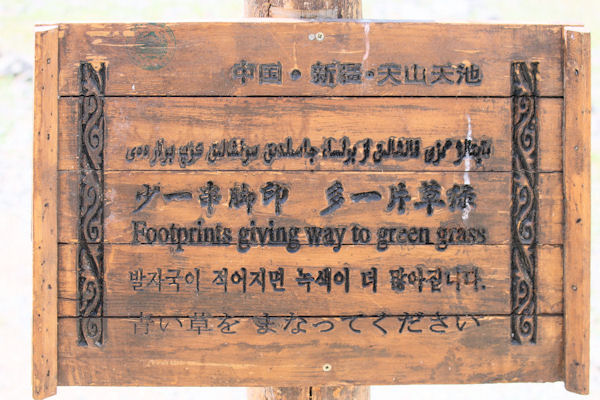 中国·新疆·天山天池
قانشالىق از بولسا جاسىلدىق سونشالىق
少一串脚印 多一片草绿
Footprints giving way to green grass
발자국이 적어지면 녹색이 더 많아집니다.
青い草を まなってください